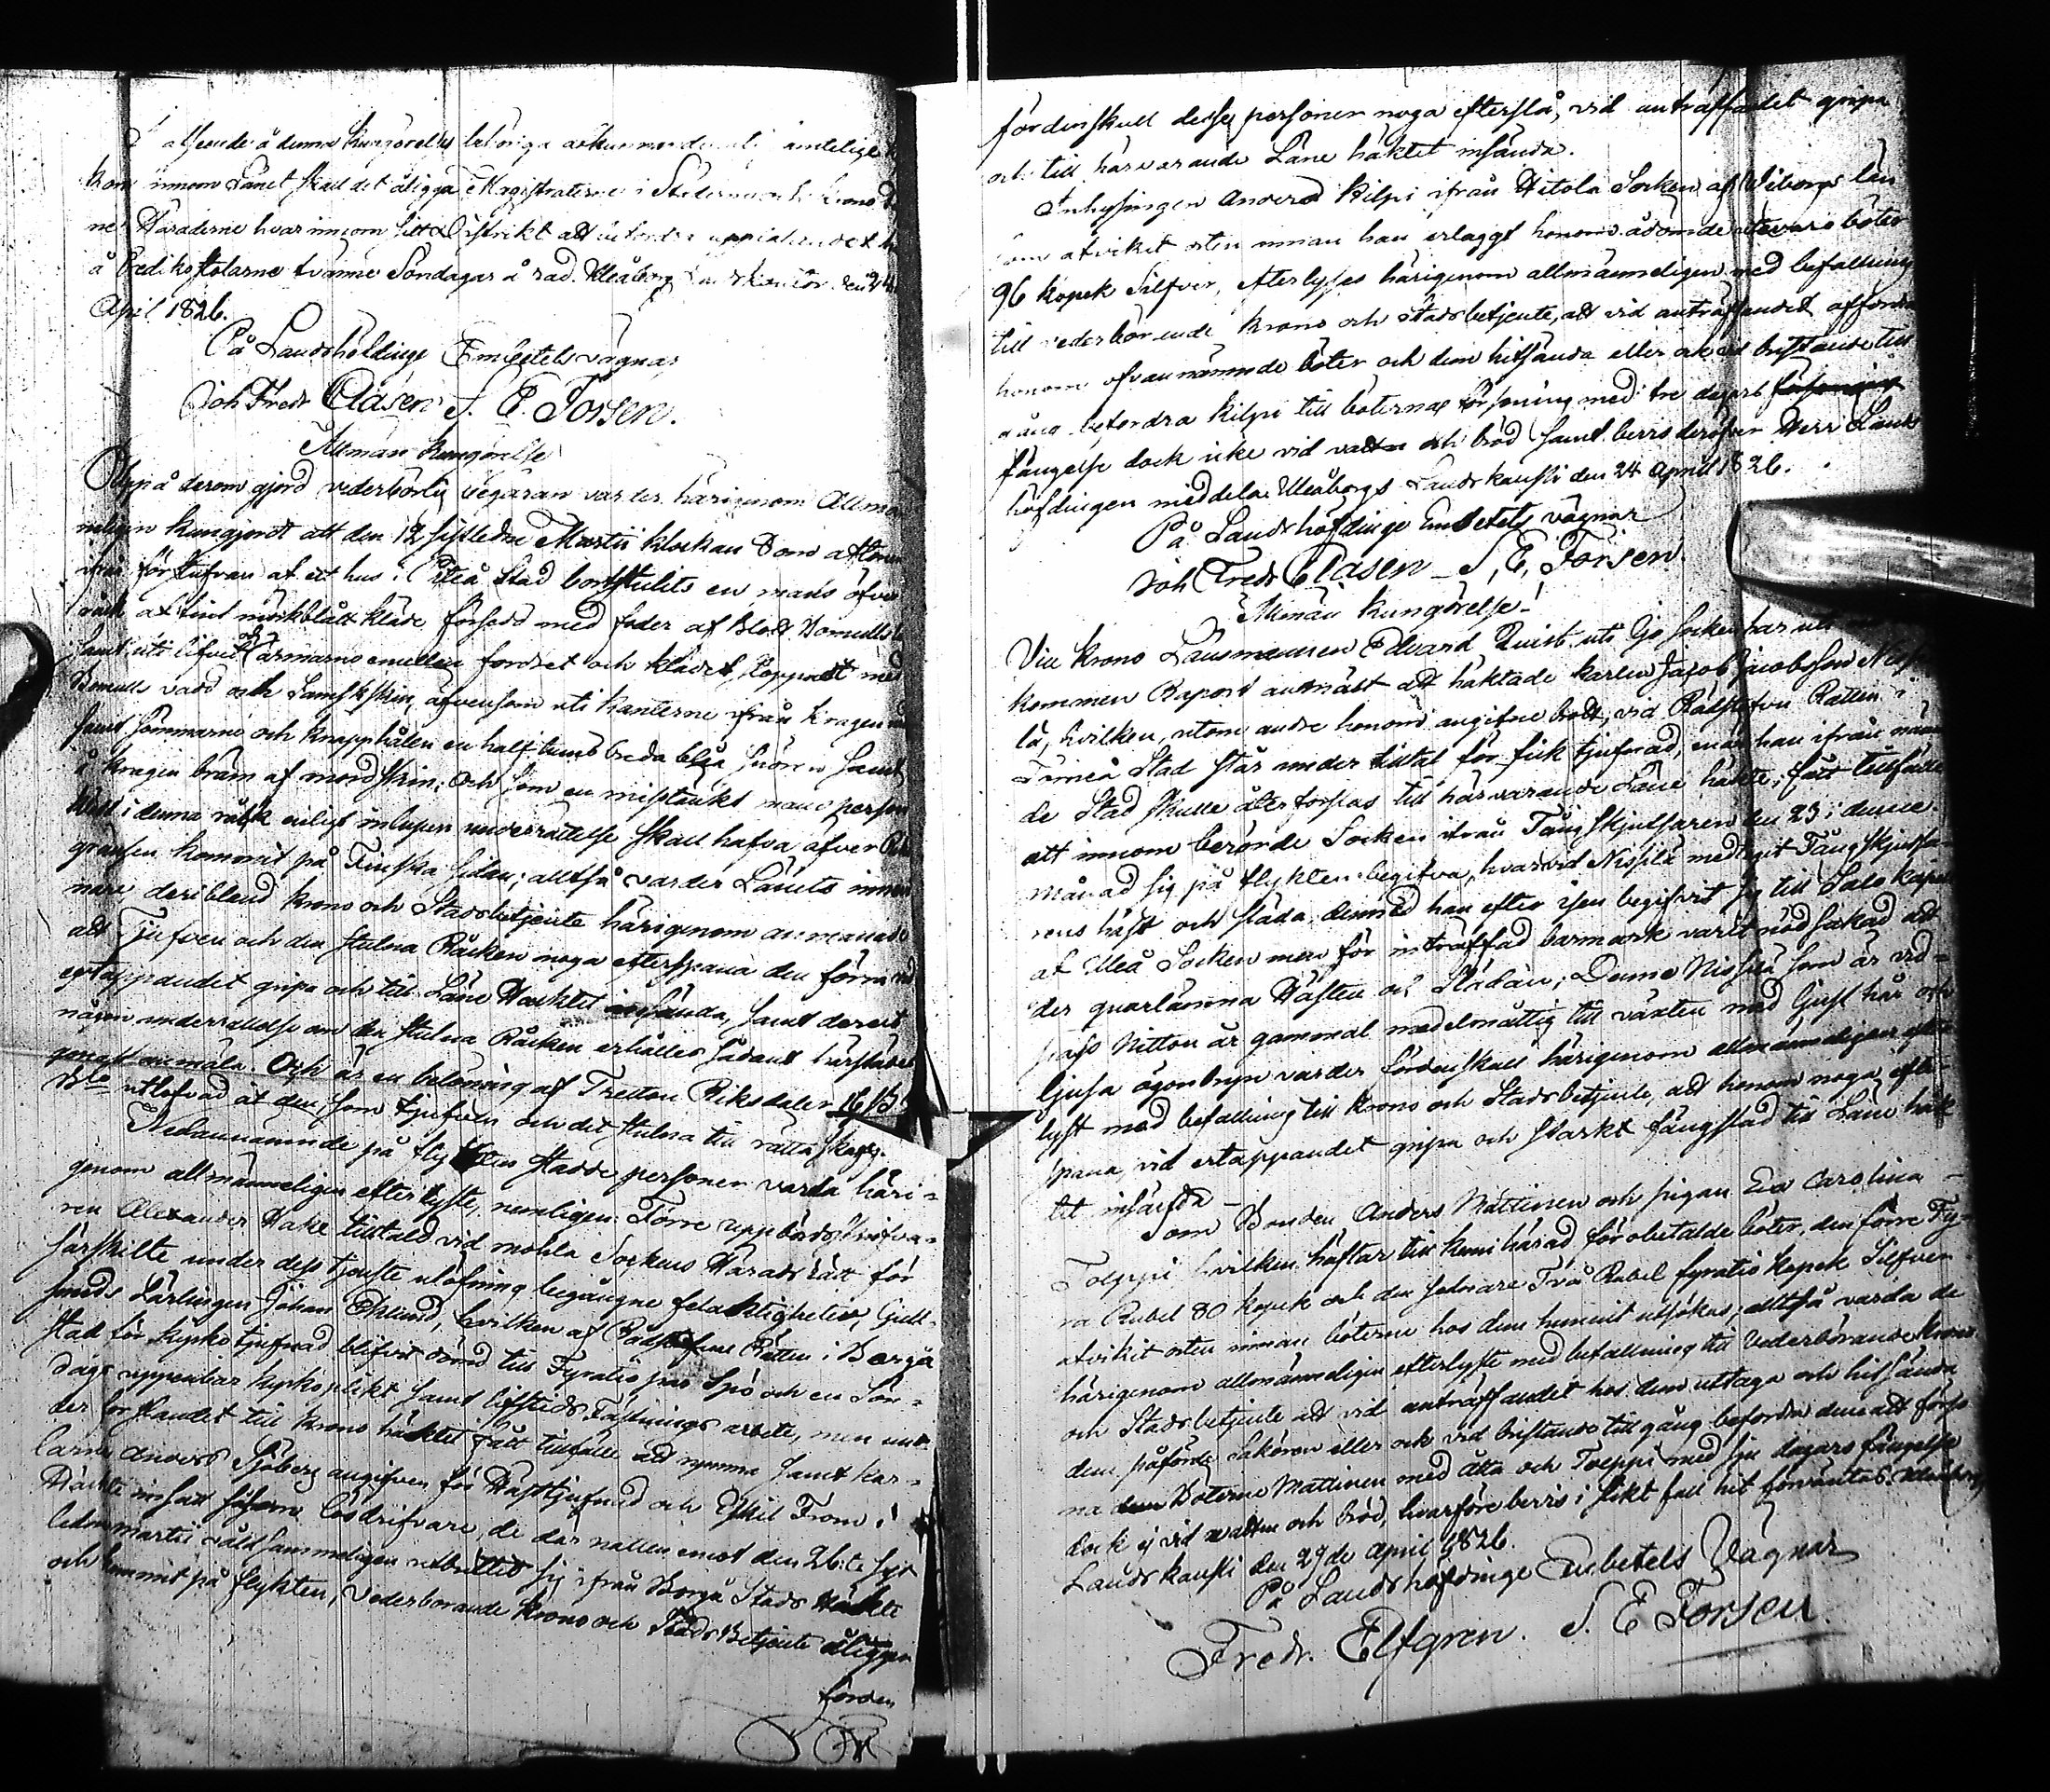 afseende å denna Kungörelses behöriga
inom Länet skall det åligga Magistraterne i Städerne
Häraderne hvar inom sitt Distrikt att
å Predikstolarne tvänne Söndagar å rad. Uleåborg
April 1826.
På Landshöldinge Embetets vägnar
Joh Fredr Clasen S. E. Forsen.
Allmän Kungörelse
Uppå derom gjord vederbörlig begäran varder härigenom Allmä
neligen kungjordt att den 12 sistledne Martii klockan
förstufvan af ett hus i Piteå Stad bortstulits en mans öfver
råck af fint mörkblått kläde försedd med foder af Blått Bomulls
samt uti lifvet och ärmarne emellan fodret och klädet stoppadt med
Bomulls vadd och Lamskskin, äfvensom uti kanterne ifrån kragen
samt sömmarne och knapphålen en half tums breda blåa snören samt
å kragen bräm af mårdskin; Och som en misstänkt mans person
klädd i denna råck enligt inlupen underrättelse skall hafva öfver
gränsen kommit på Finska sidan; alltså varder Länets innevå
nare, deribland krono och Stadsbetjente härigenom anmanade
att Tjufven och den stulna Råcken noga efterspana den förra vid
ertappandet gripa och till Läne Häcktet insända, samt derest
någon underrättelse om den stulna Råcken erhålles sådant härstädes
genast anmäla. Och är en belöning af Tretton Riksdaler 16 s
Bco utlofvad åt den, som tjufven och det stulna till rätta skaffar.
Nedannämnde på flykten stadde personer varda häri-
genom allmänneligen efterlyste, nemligen: Förre uppbördsskrifva-
ren Alexander Hake tilltald vid Mohla Sockens Häradsrätt för
särskilte under dess tjenste utöfning begångne felaktigheter, Guld-
smeds Lärlingen Johan Eklund, hvilken af Rådstufvu Rätten i Borgå
Stad för kyrkotjufnad blifvit dömd till Fyratio par Spö och en Sön-
dags uppenbar kyrkoplikt samt lifstids Fästnings arbete, men un-
der forslandet till krono häcktet fått tillfälle att rymma samt kar-
larne Anders Sjöberg angifven för Hästtjufnad och Eskil From i
Häkte insatt såsom lösdrifvare, de der natten emot den 26te sist
ledne martii våldsammeligen utbrutit sig ifrån Borgå Stads Häkte
och kommit på flykten, Vederbörande krono och Stads Betjente åligger
förden
fördenskull desse personer noga efterslå, vid anträffandet gripa
och till härvarande Läne häktet insända.
Inhysingen Anders Kilpi ifrån Hitola Socken af Wiborgs län
som afvikit orten innan han erlagt honom ådömde böter
96 kopek Silfver, efterlyses härigenom allmänneligen med befallning
till vederbörande krono och stadsbetjente, att vid anträffandet affordra
honom ofvannämnde böter och dem hitsända eller ock vid bristande till
gång befordra Kilpi till böternas försoning med tre dagars
fängelse dock icke vid vatten och bröd samt berris deröfver Herr Lands
höfdingen meddela. Uleåborgs Landskansli den 24 April 1826.
På Landshöfdinge Embetets vägnar
Joh Fredr Clasen S. E. Forsen.
Allmän kungörelse!
Vice krono Länsmannen Edvard Quist uti Ijo socken har uti
kommen Raport anmält att häktade karlen Jacob Jacobsson Nissi
lä, hvilken, utom andre honom angifne brott, vid Rådstufvu Rätten i
Torneå Stad står under tilltal för fick tjufnad, när han ifrån nämn
de Stad skulle återforslas till härvarande Läne häkte, fått tillfälle
att innom berörde Socken ifrån Fångskjutsaren den 23 i denne
månad sig på flykten begifva, hvarvid Nissilä medtagit Fångskjutsa-
rens häst och släda, dermed han efter isen begifvit sig till Salo kapell
af Uleå Socken men för inträffad barmark varit nödsakad att
der quarlämna Hästen och Slädan; Denne Nissilä som är vid-
pass Nitton år gammal medelmåttig till växten med ljust hår och
ljusa ögonbryn varder fördenskull härigenom allmänneligen efter
lyst med befallning till krono och Stadsbetjente, att honom noga efter-
spana, vid ertappandet gripa och starkt fängslad till Läne häk
tet insända
Som Bonden Anders Mattinen och pigan Eva Carolina
Toeppi hvilken häftar till Kemi härad för obetalde böter, den förre Fy-
ra Rubel 80 kopek och den sednare Två Rubel fyratio kopek Silfver
afvikit orten innan böterne hos dem hunnit utsökas; alltså varda de
härigenom allmänneligen efterlyste med befallning till Vederbörande krono
och Stadsbetjente att vid anträffandet hos dem uttaga och hitsända
dem påförde sakören eller och vid bristande tillgång befordra dem att förso
na Böterne Mattinen med åtta och Toeppi med sju dagars fängelse
dock ej vid vatten och bröd, hvarföre berris i slikt fall hit förväntas. Uleåborgs
Landskansli den 29de April 1826.
På Landshöfdinge Embetets Vägnar
Fredr. Elfgren. S. E Forsen